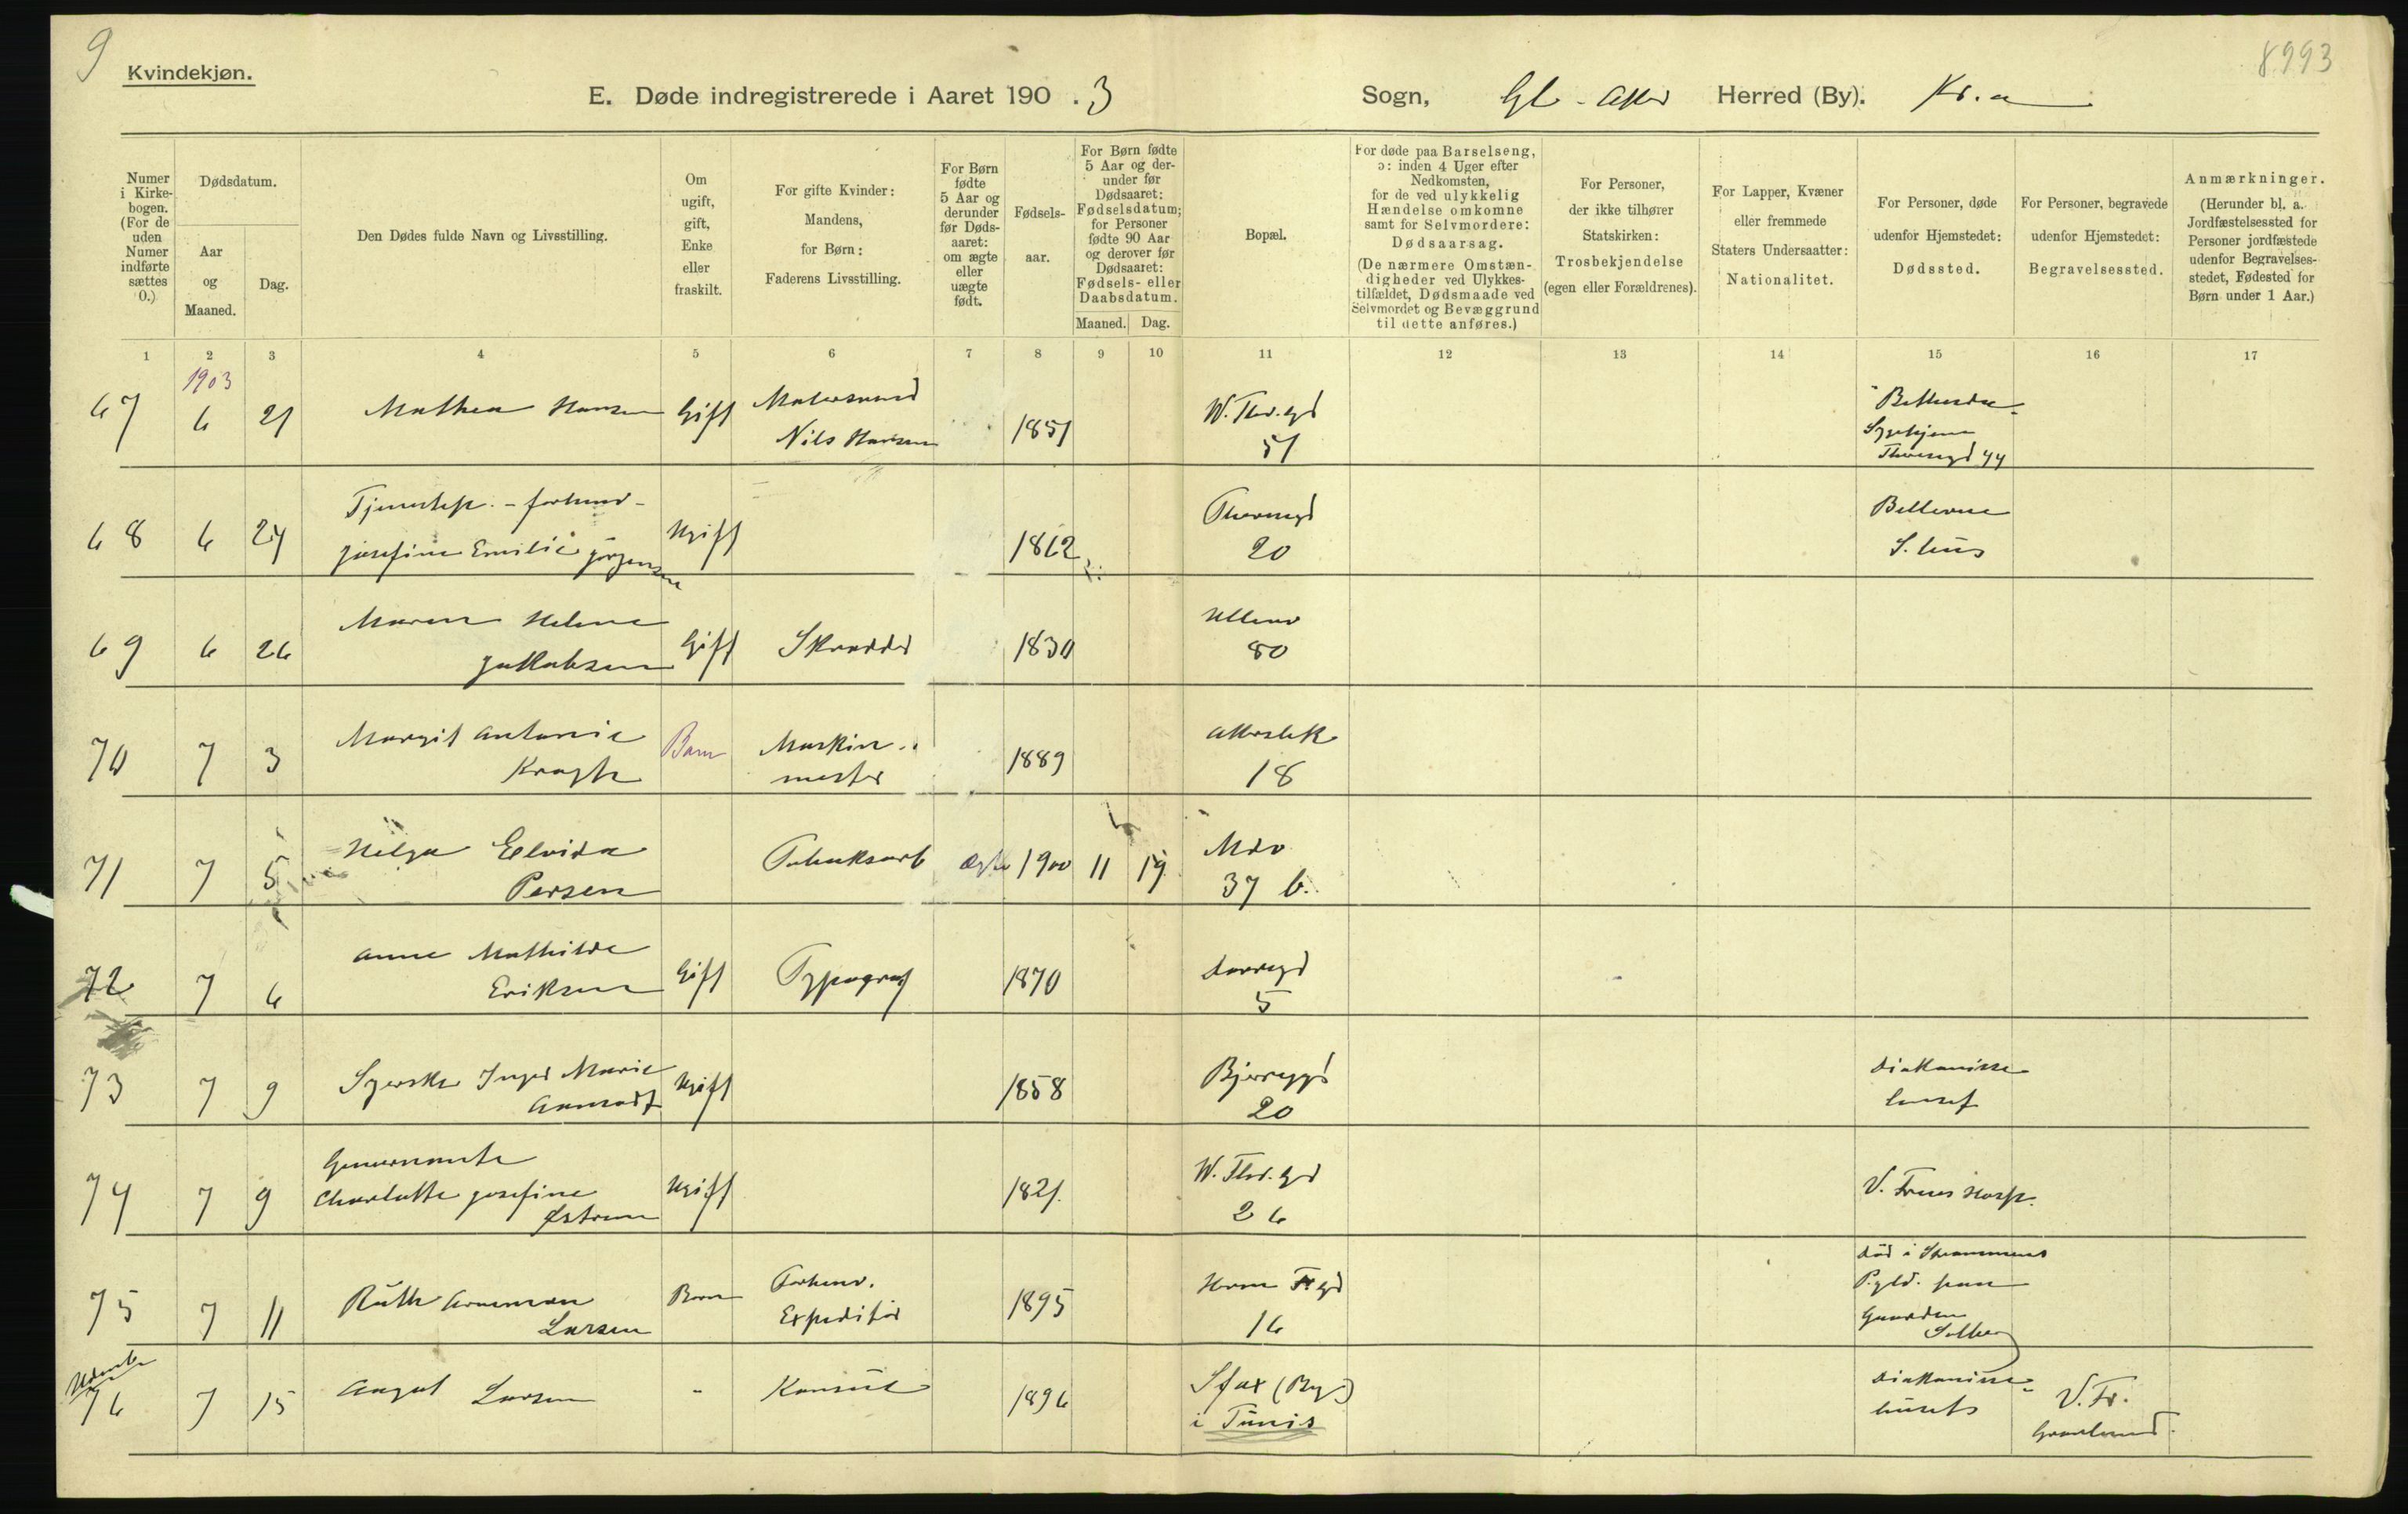 9
Kvindekjøn.
8993
E. Døde indregistrerede i Aaret 190 . 3
Sogn, Gl - Aker Herred (By). Kr.a
Numer i Kirke-bogen. (For de uden Numer indførte sættes 0.)
Dødsdatum.
Aar og Maaned.
Dag.
Den Dødes fulde Navn og Livsstilling.
Om ugift, gift, Enke eller fraskilt.
For gifte Kvinder: Mandens, for Børn: Faderens Livsstilling.
For Børn fødte 5 Aar og derunder før Døds-aaret: om ægte eller uægte født.
Fødsels-aar.
For Børn fødte 5 Aar og der-under før Dødsaaret: Fødselsdatum; for Personer fødte 90 Aar og derover før Dødsaaret: Fødsels- eller Daabsdatum.
Maaned. Dag.
Bopæl.
For døde paa Barselseng, ɔ: inden 4 Uger efter Nedkomsten, for de ved ulykkelig Hændelse omkomne samt for Selvmordere: Dødsaarsag. (De nærmere Omstæn-digheder ved Ulykkes-tilfældet, Dødsmaade ved Selvmordet og Bevæggrund til dette anføres.)
For Personer, der ikke tilhører Statskirken: Trosbekjendelse (egen eller Forældrenes).
For Lapper, Kvæner eller fremmede Staters Undersaatter: Nationalitet.
For Personer, døde udenfor Hjemstedet: Dødssted.
For Personer, begravede udenfor Hjemstedet: Begravelsessted.
Anmærkninger. (Herunder bl. a. Jordfæstelsessted for Personer jordfæstede udenfor Begravelses-stedet, Fødested for Børn under 1 Aar.)
1 2 3 4 5 6 7 8 9 10 11 12 13 14 15 16 17
1903
67 6 21 Mathea Hansen Gift Matersmed Nils Hansen 1851 W. Thr. gd 51 Bethesda Sygehjem Theresegd 44
68 6 24 Tjenestep. - forhenv - Josefine Emilie Jørgensen Ugift 1862 Theresegd 20 Bellevue S. hus
69 6 26 Maren Helene Jakobsen Gift Skrædder 1830 Ullev 80
70 7 3 Margit Antonie Kragh Barn Maskinmester 1889 Akersbk 18
71 7 5 Helga Elvida Persen Tobaksarb ægte 1900 11 19 Mdv 37 b.
72 7 6 Anne Mathilde Eriksen Gift Typograf 1870 Dovregd 5
73 7 9 Syerske Inger Marie Aamodt Ugift 1858 Bjerregd 20 Diakonisse huset
74 7 9 Guvernante Charlotte Josefine Østrem Ugift 1821. W. Thr. gd 26 V. Frues Hosp.
75 7 11 Ruth Larsen Barn Forhenv. Expeditør 1895 16 Død i Strømmens P.gld. paa Gaarden Solberg
76 7 15 August Larsen - Konsul 1896 Sfax (By) i Tunis Diakonisse-husets V. Fr. Gravlund.